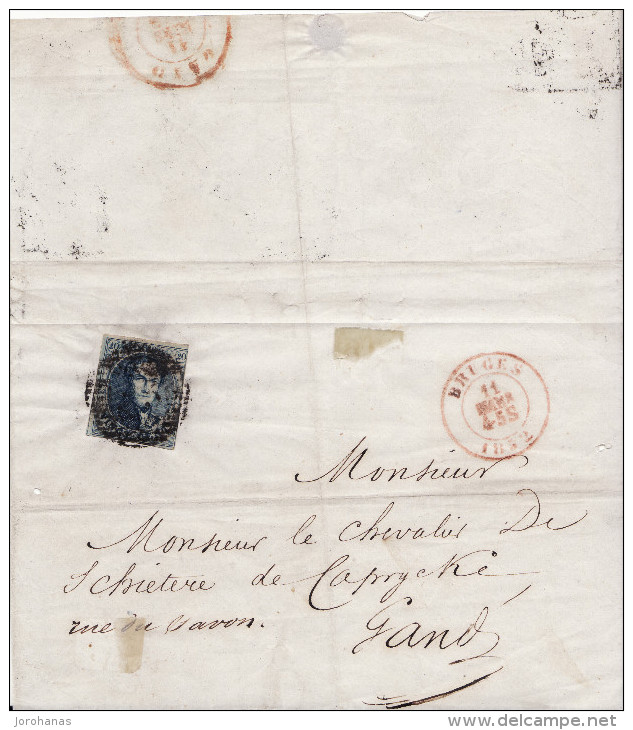 GAND
20 20
BRUGES
11
4-5S
1852
Monsieur
Monsieur le chevalier De
Schietere de Caprycke
rue du Savon.
Gand
jorohanas
www.delcampe.net